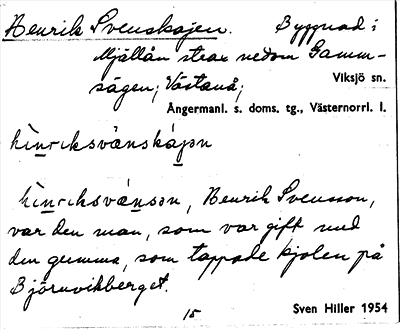 Henrik Svenskojen. Byggnad i
Mjällån strax nedom Gamm-
sågen; Västanå; Viksjö sn.
Ångermanl. s. doms. tg., Västernorrl. l.
Henrik Svensson,
var den man, som var gift med
den gumma, som tappade kjolen på
Björnvikberget.
15 Sven Hiller 1954